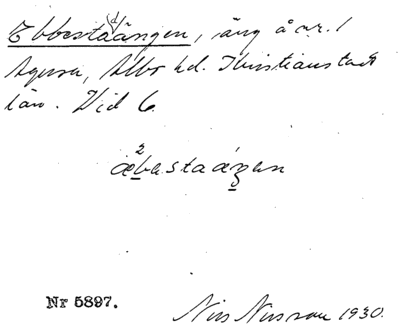 Ebbesta(d)ängen, äng å nr. 1
Agusa, Albo hd. Kristianstads
län. Vid 6
æ²bestaáŋen
Nr 5897.
Nils Nilsson 1930.